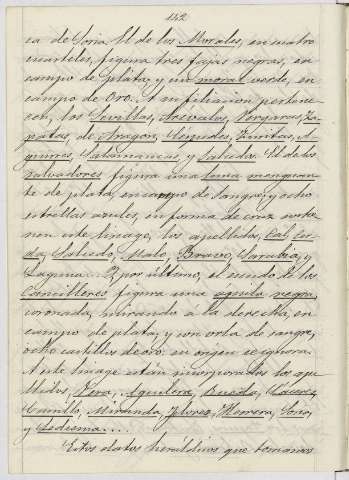 142
ca de Soria. El de los Morales, en cuatro
cuarteles, figura tres fajas negras, en
campo de plata, y un moral verde, en
campo de oro. A su filiacion pertene-
cen, los Sevillas, Arévalos, Vergaras, Za-
patas, de Aragon, Céspedes, Zuritas, A-
guirres, Salamancas, y Salcedo. El de los
Salvadores figura una luna menguan-
te de plata, en campo de sangre, y ocho
estrellas azules, en forma de cruz sostie-
nen este linage, los apellidos,
da, Salcedo, Malo, Bravo, Sarabia, y
Laguna. Y por último, el escudo de los
Cancilleres figura una águila negra,
coronada, mirando á la derecha, en
campo de plata, y con orla de sangre,
ocho castillos de oro. Su origen se ignora.
A este linage están incorporados los ape-
llidos, Vera, Aguilera, Rueda,
Camilo, Miranda, Yañez, Herrera, Soria,
y Ledesma....
Estos datos heráldicos que tomamos